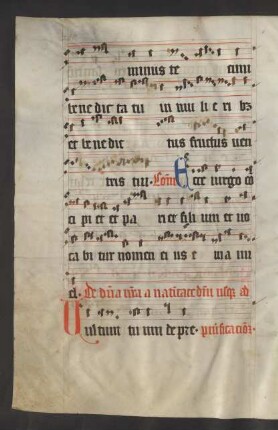 minus te cum
bene dic ta tu in mu li e ri bz
et bene dic tus fructus uen
tris tui. Com̄ Ecce uirgo cō
ci pi et et pa ri et fili um et uo
ca bi tur nomen ei us e ma nu
el. De dn̄a nr̄a a natiuitate dn̄i usq; ad
Vultum tu um de p̄ce. purificacionē